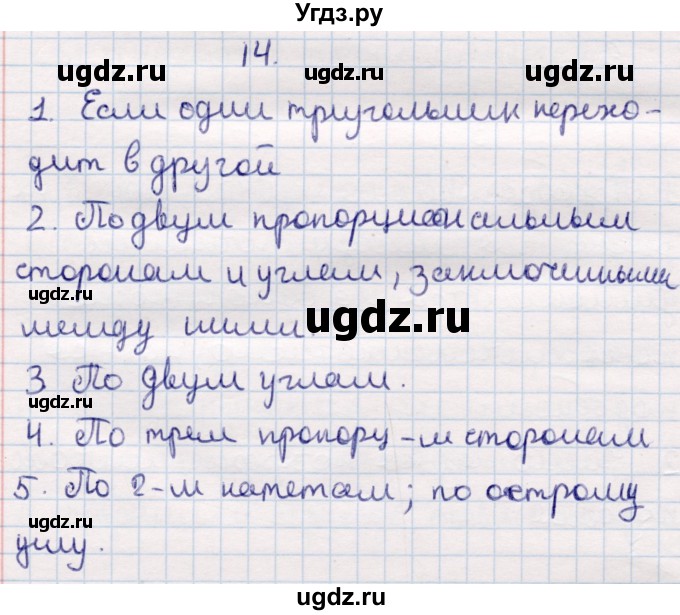 Угдз.ру
14.
ugdz.ru ugdz.ru ugdz.ru
1. Если один треугольник перехо-
дит в другой
2. По двум пропорциональным
сторонам и углам, заключёнными
ugdz.ru
между ними.
ugdz.ru
3 По двум углам.
ugdz.ru
4. По трем пропорц-м сторонам
ugdz.ru ugdz.ru ugdz.ru
5. По 2-м катетам; по острому
ugdz.ru
углу.
Угдз.ру